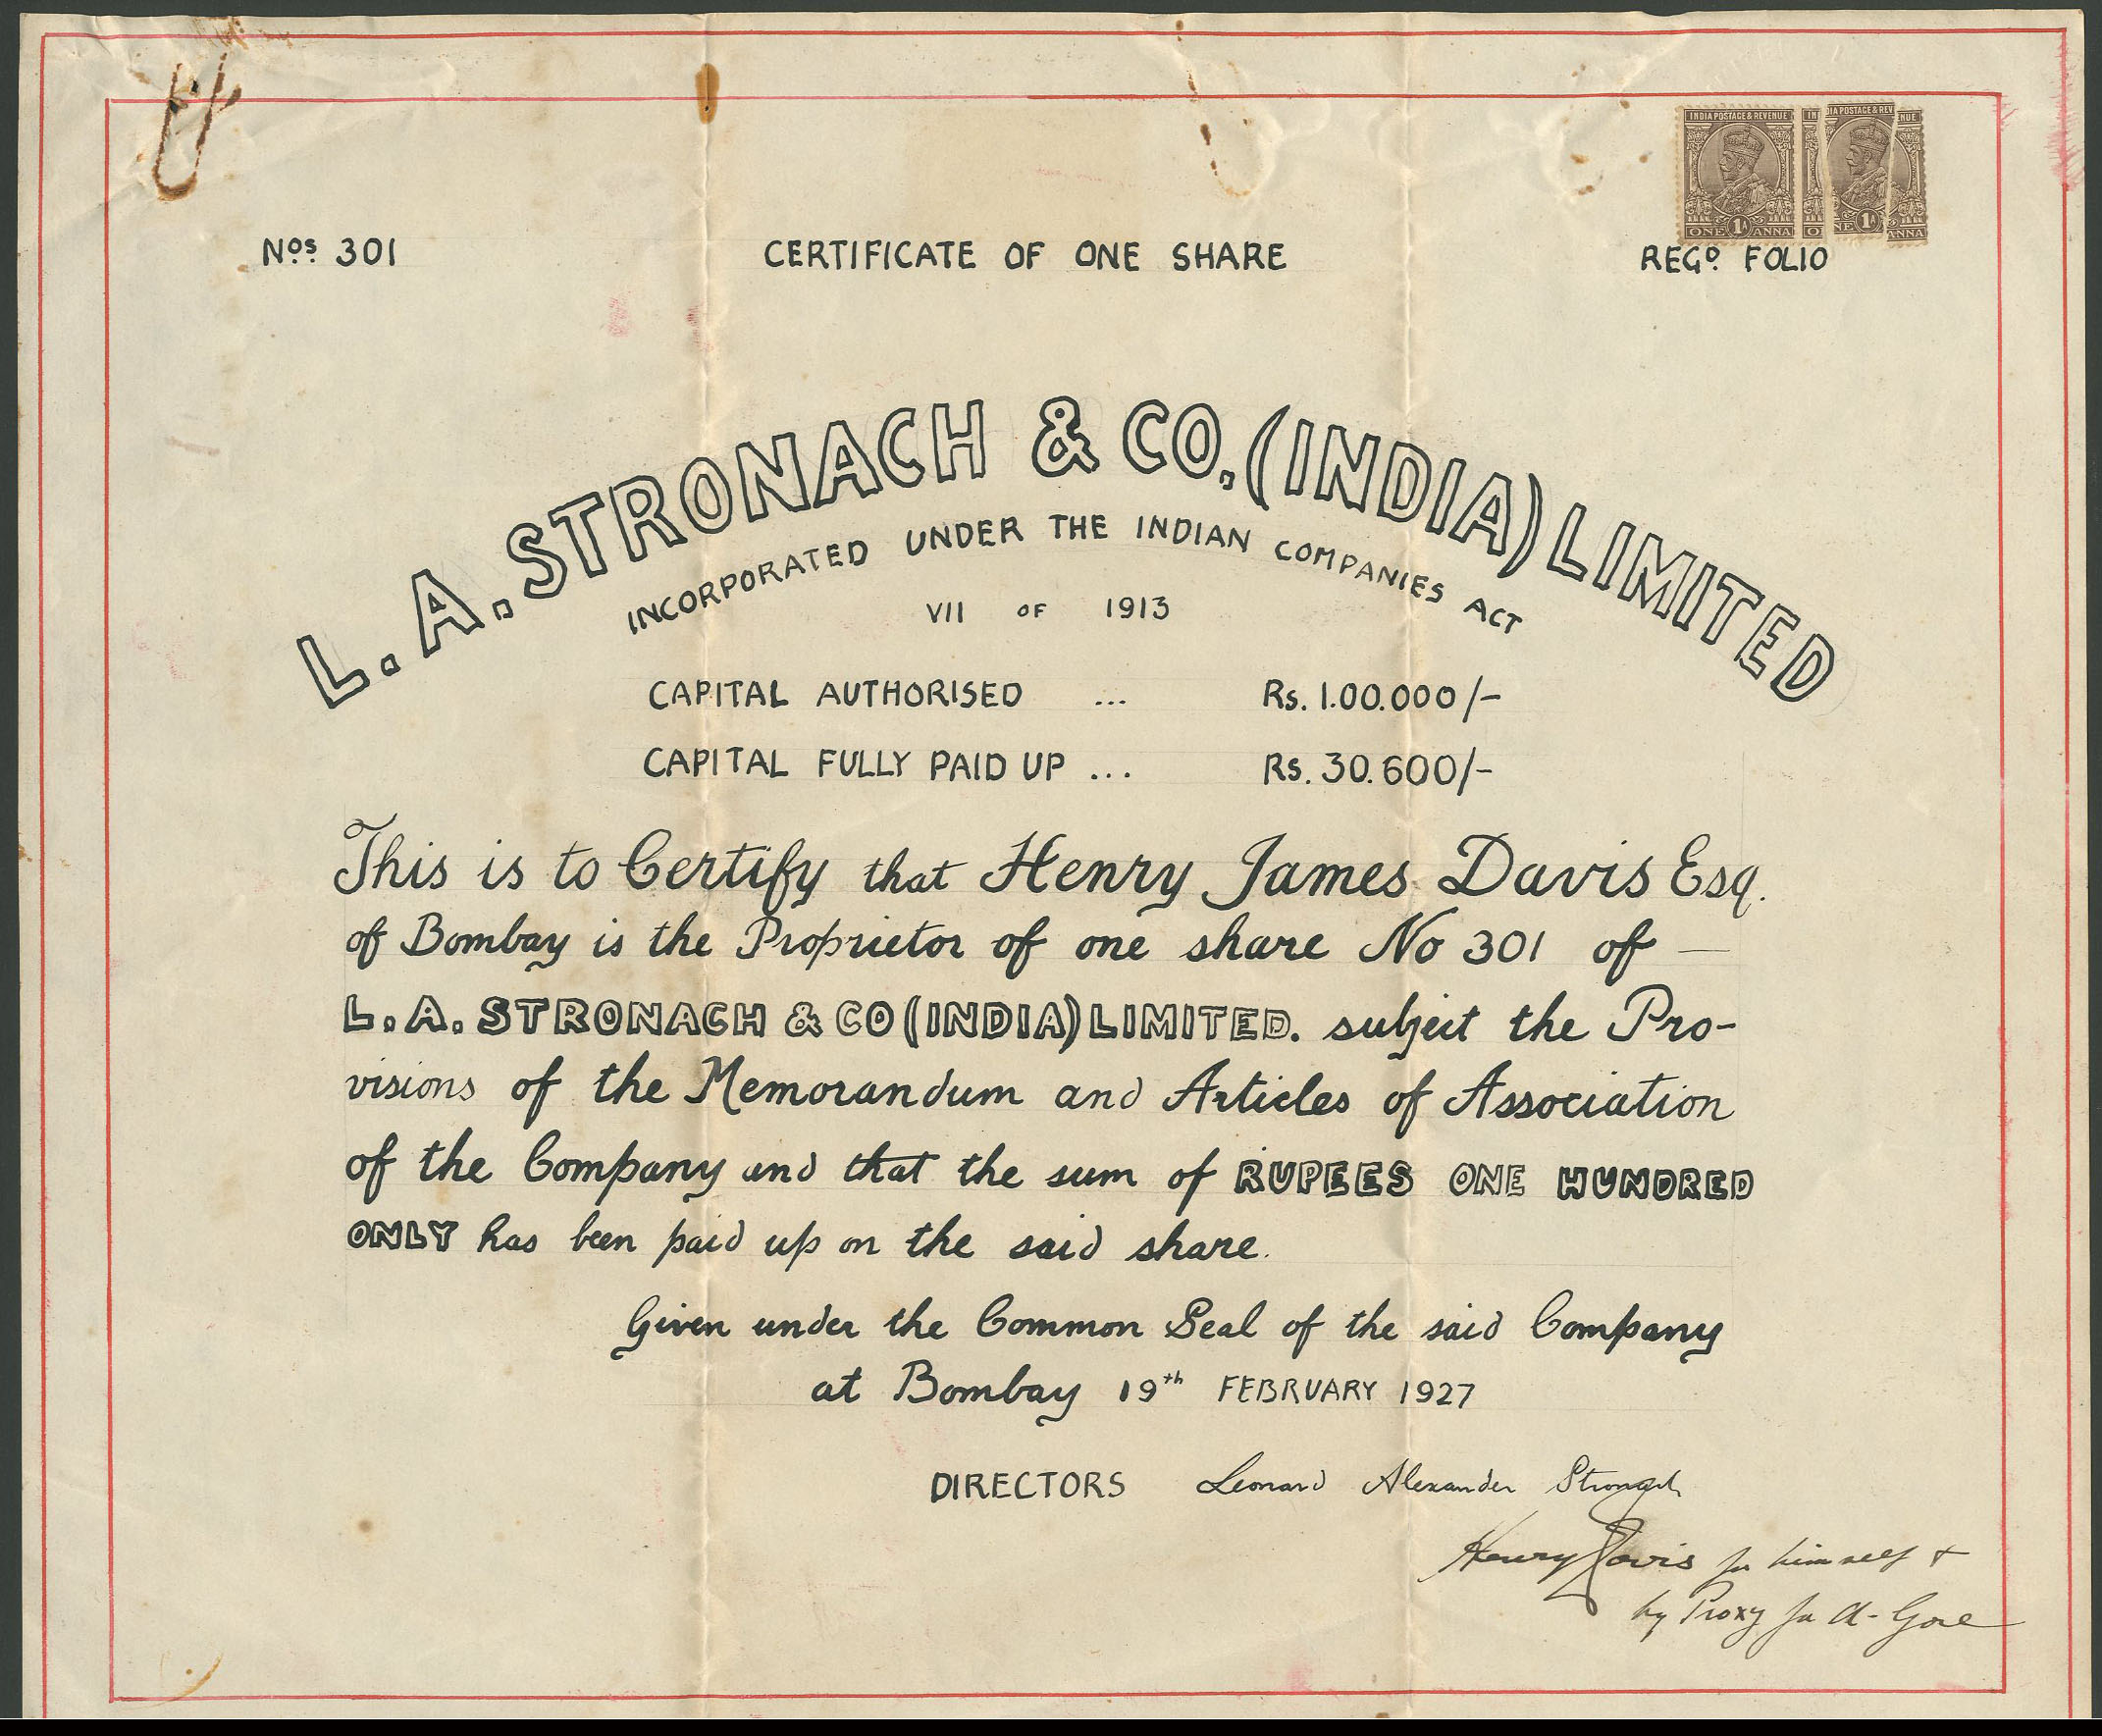 INDIA POSTAGE & REVENUE
ONE 1A ANNA
IN
O
DIA POSTAGE & REV
NE 1A
NUE
ANNA
Nos. 301
CERTIFICATE OF ONE SHARE
REGD. FOLIO
L.A. STRONACH & CO. (INDIA) LIMITED
INCORPORATED UNDER THE INDIAN COMPANIES ACT
VII OF 1913
CAPITAL AUTHORISED ... Rs. 1.00.000/-
CAPITAL FULLY PAID UP ... Rs. 30.600/-
This is to Certify that Henry James Davis Esq.
of Bombay is the Proprietor of one share No 301 of —
L.A. STRONACH & CO (INDIA) LIMITED. subject the Pro-
visions of the Memorandum and Articles of Association
of the Company and that the sum of RUPEES ONE HUNDRED
ONLY has been paid up on the said share.
Given under the Common Seal of the said Company
at Bombay 19th FEBRUARY 1927
DIRECTORS Leonard Alexander Stronach
Henry Davis for himself +
by Proxy for A-